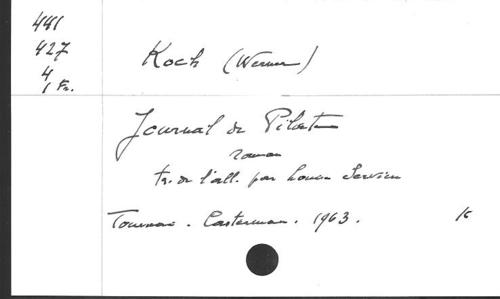 441
427
4
1 Fr.
Koch (Werner)
Journal de Pilate
roman
tr. de l'all. par Louis Servicen
Tournai. Casterman. 1963. 16